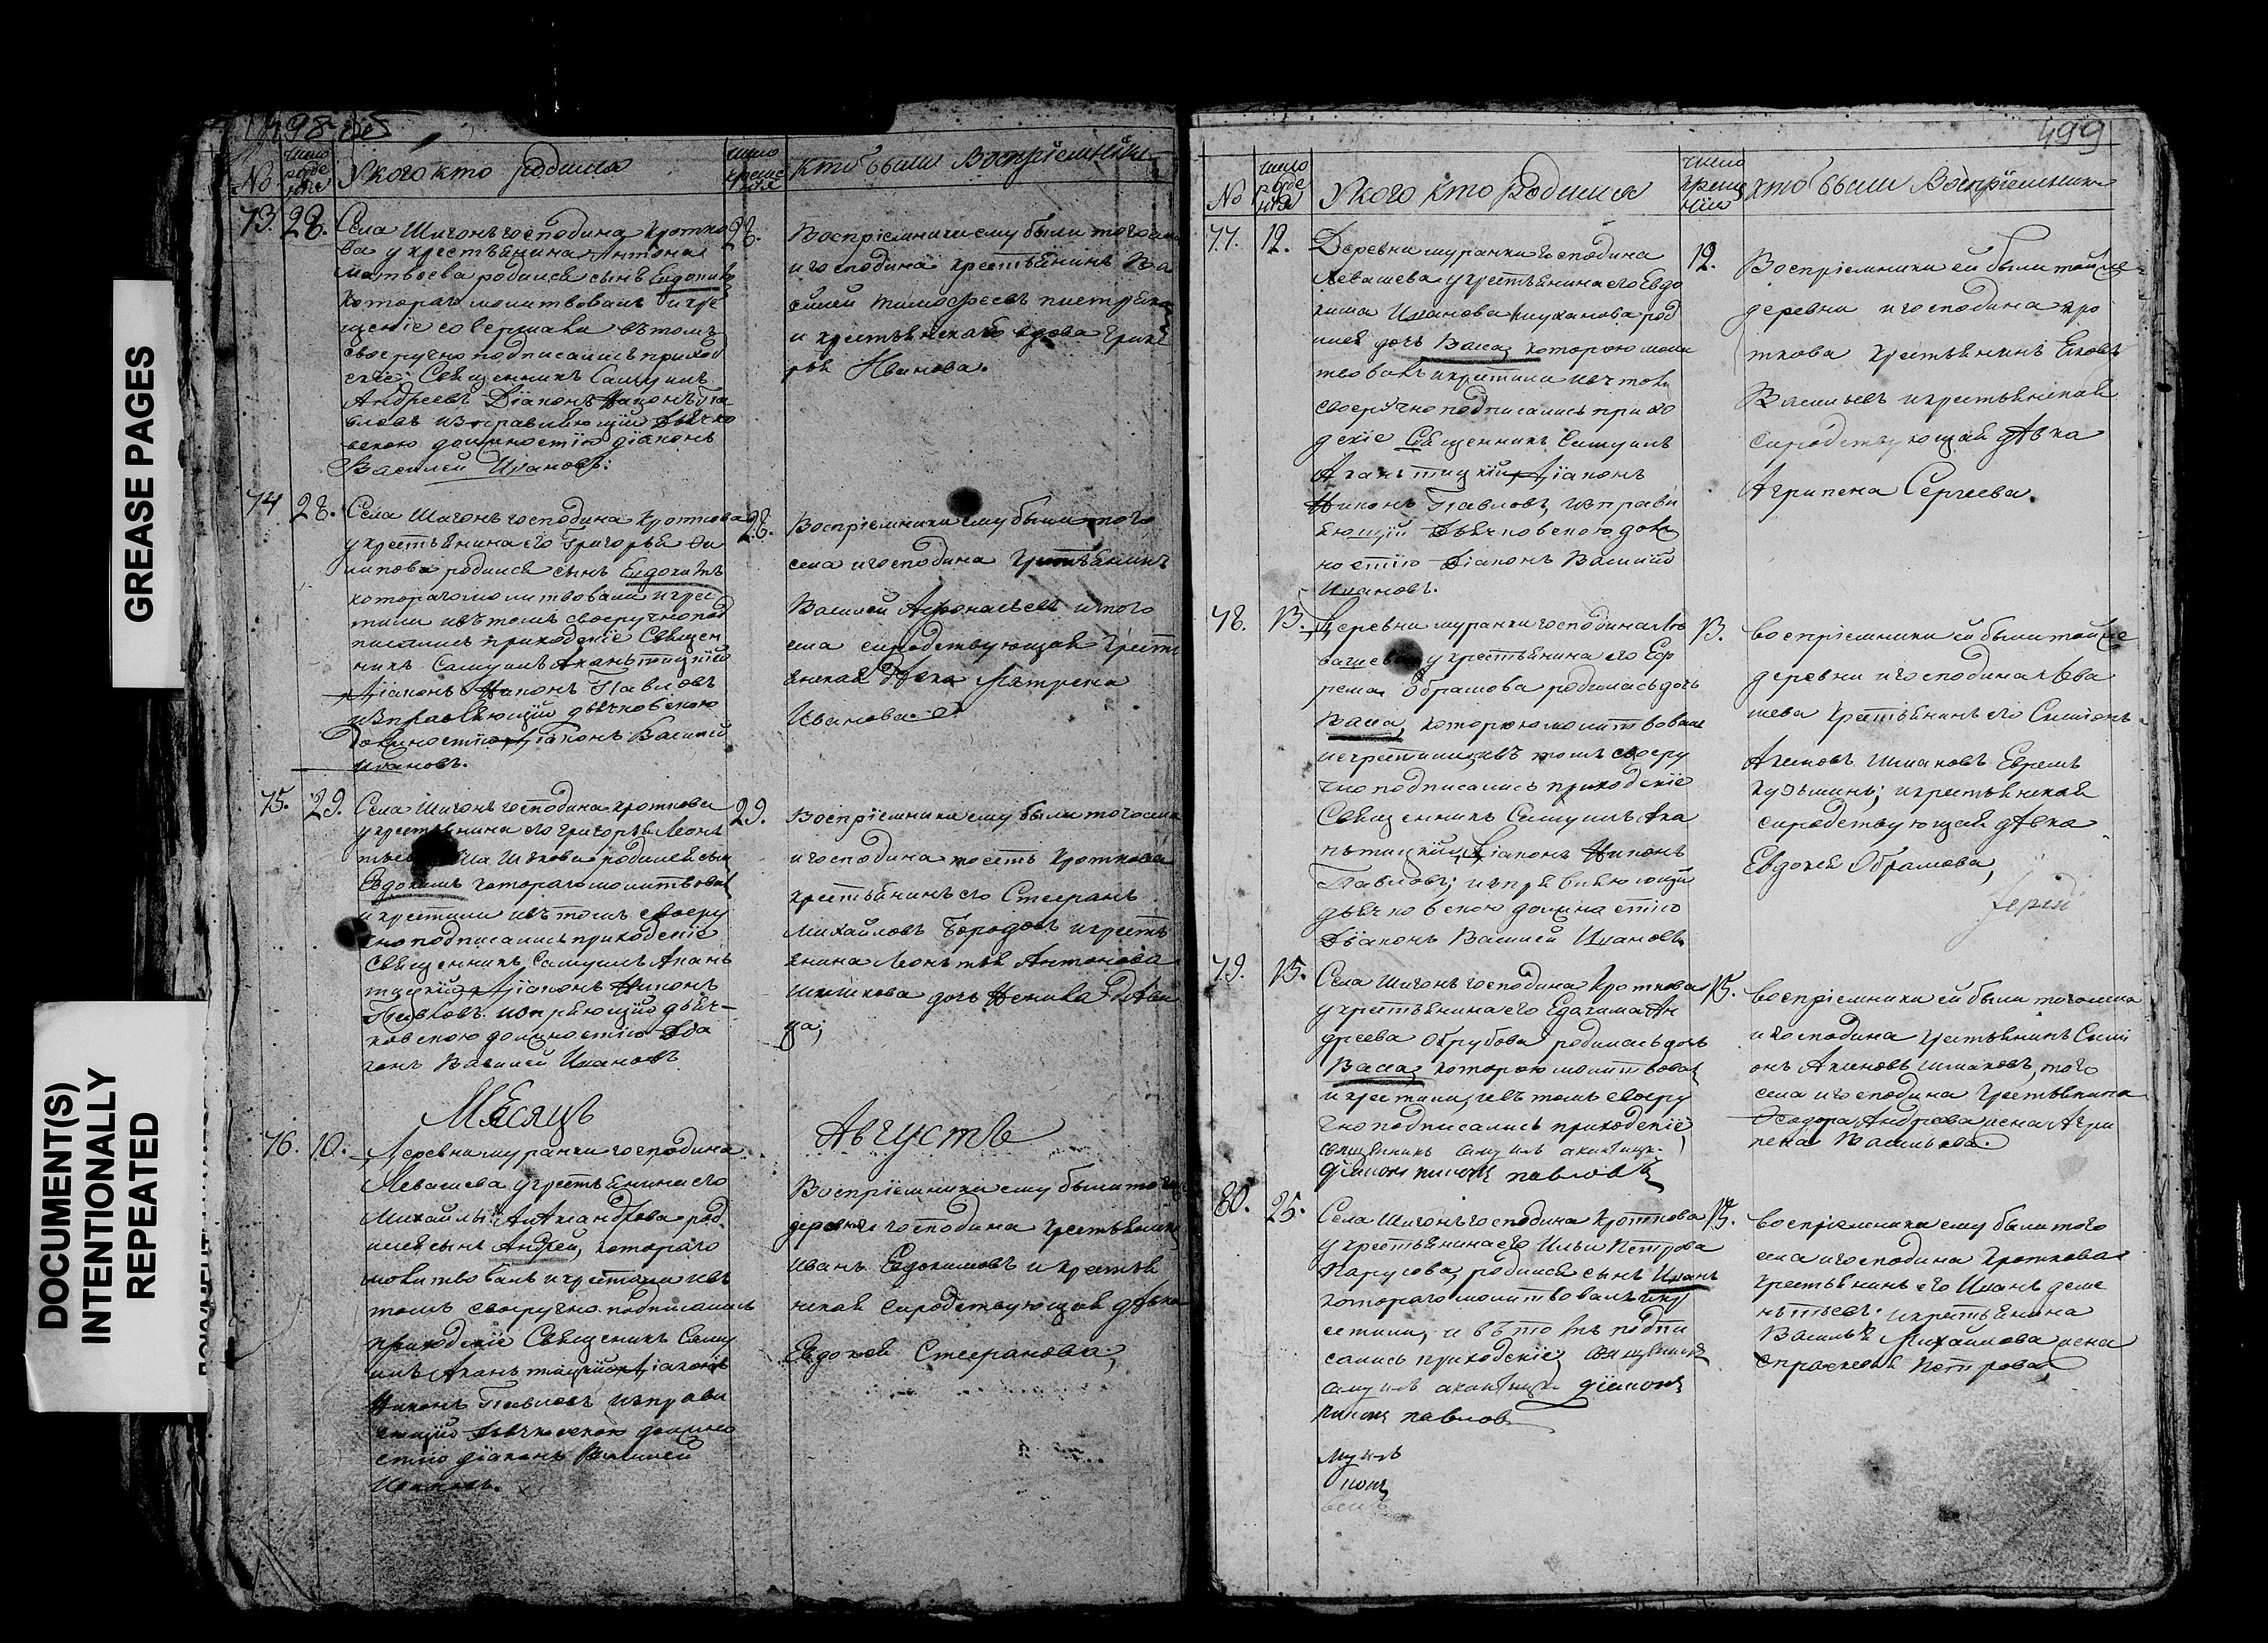 GREASE PAGES
DOCUMENT(S)
INTENTIONALLY
REPEATED
498 об
No
число
рожде
нія
У кого кто родился
число
креще
нія
Кто были Воспріемники
73. 28.
Села Шигонъ господина Кротко
ва у крестьянина Антона
Матвеева родился сынъ Евдокимъ
котораго молитвовалъ и кре
щеніе совершали въ томъ
своеручно подписались приход
скіе: Священникъ Самуилъ
Андреевъ Діаконъ Никонъ Па
вловъ изправляющій дьячко
вскою должностію діаконъ
Василей Ивановъ:
28.
Воспріемники ему были того села
и господина крестьянинъ Ва
силей Тимофеевъ
и крестьянская вдова
Иванова.
74 28.
Села Шигонъ господина Кроткова
у крестьянина его Григорья Фи
липова родился сынъ Евдокимъ
котораго молитвовали и крес
тили и въ томъ своеручно под
писались приходскіе Священ
никъ Самуилъ Акантицкій
Діаконъ Никонъ Павловъ
изправляющій дьячковскою
должностію діаконъ Василей
Ивановъ.
28.
Воспріемники ему были того
села и господина крестьянинъ
Василей Афонасьевъ и того
села сиродствующая кресть
янская дѣвка Матрена
Иванова
75. 29.
Села Шигонъ господина Кроткова
у крестьянина его Григорья Леонъ
тьев Шишкова родился сынъ
Евдокимъ котораго молитвовали
и крестили и въ томъ своеру
чно подписались приходскіе
Священникъ Самуилъ Акань
тицкій Діаконъ Никонъ
Павловъ дьяч-
ковскою должностію Діа
конъ Василей Ивановъ
29.
Воспріемники ему были того села
и господина тоесть Кроткова
крестьянинъ его Стефанъ
Михайловъ Бородовъ и кресть
янина Леонтья Антонова
Шишкова дочь дѣви
ца;
Мѣсяцъ Августъ
76. 10.
Деревни Муранки господина
Левашева у крестьянина его
Михайлы Александрова род
ился сынъ Андрей, котораго
молитвовалъ и крестили и въ
томъ своеручно подписались
приходскіе Священикъ Саму
илъ Аканьтицкій Діаконъ
Никонъ Павловъ изправля
ющій дьячковскою должно
стію діаконъ Василей
Ивановъ.
Воспріемники ему были той же
деревни и господина крестьянинъ
Иванъ Евдокимовъ и крестья
нская сиродствующая дѣвка
Евдокея Стефанова;
499
No
число
рожде
нія
У кого кто Родился
число
креще
нія
кто были Воспріемники
77. 12.
Деревни Муранки господина
Левашева у крестьянина его Евдо
кима Иванова род
илась дочь Васса, которою моли
твовалъ и крестили и въ томъ
своеручно подписались прихо
дскіе Священникъ Самуилъ
Аканьтицкій Діаконъ
Никонъ Павловъ, изправл
яющій дьячковскою долж
ностію Діаконъ Василей
Ивановъ.
12.
Воспріемники ей были той же
деревни и господина Кро
ткова крестьянинъ Яковъ
Васильевъ и крестьянская
сиродствующая дѣвка
Агрипена Сергеева.
78. 13.
Деревни Муранки господина Ле
вашева у крестьянина его Еф
рема Обрамова родилась дочь
Васса, которую молитвовали
и крестили, и въ томъ своеру
чно подписались приходскіе
Священникъ Самуилъ Ака
ньтицкій, Діаконъ Никонъ
Павловъ; изправляющій
дьячковскою должностію
Діаконъ Василей Ивановъ
13.
Воспріемники ей были той же
деревни и господина Лева
шева крестьянинъ его Симіонъ
Акимовъ Шмаковъ Ефремъ
Кузьминъ; и крестьянская
сиродствующая дѣвка
Евдокея Обрамова,
Іерей
79. 15.
Села Шигонъ господина Кроткова
у крестьянина его Евдакима Ан
дреева Обрубова родилась дочь
Васса, которою молитвовалъ
и крестили, и въ томъ своеру
чно подписались приходскіе,
священникъ Самуилъ Акантицк.
діаконъ Никонъ Павловъ
15.
Воспріемники ей были того села
и господина крестьянинъ Сими
онъ Акимовъ Шмаковъ, того
села и господина крестьянина
Феодора Андреева жена Агри
пена Васильева.
80. 25.
Села Шигонъ господина Кроткова
у крестьянина его Ильи Петрова
Парусова, родился сынъ Иванъ
котораго молитвовалъ и кр
естили, и въ томъ подпи
сались приходскіе, священникъ
Самуилъ Акантицк. діаконъ
Никонъ Павловъ
муилъ
конъ
15.
Воспріемники ему были того
села и господина Кроткова
крестьянинъ его Иванъ Деме
нтьевъ. и крестьянина
Василья Михайлова жена
Праскевья Петрова,